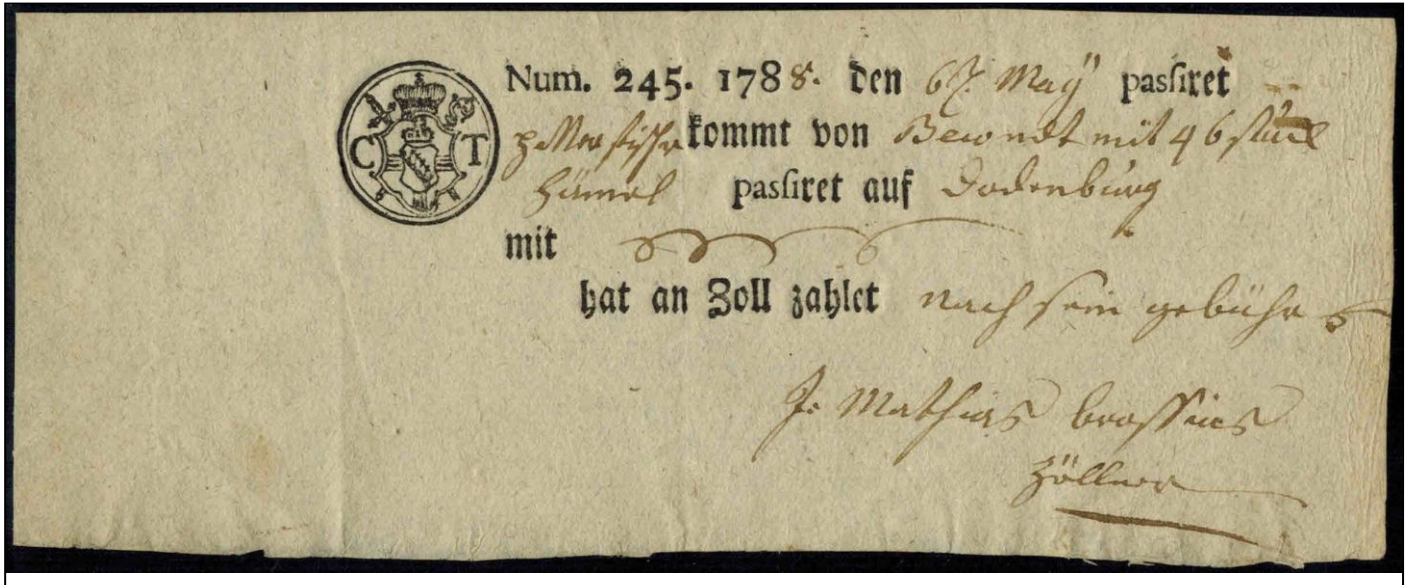 C T
Num. 245. 1788. den 6t. May passiret
kommt von mit 46 stück
Hämel passiret auf Dodenburg
mit
hat an Zoll zahlet nach sein gebühr
J. Mathias
Zöllner